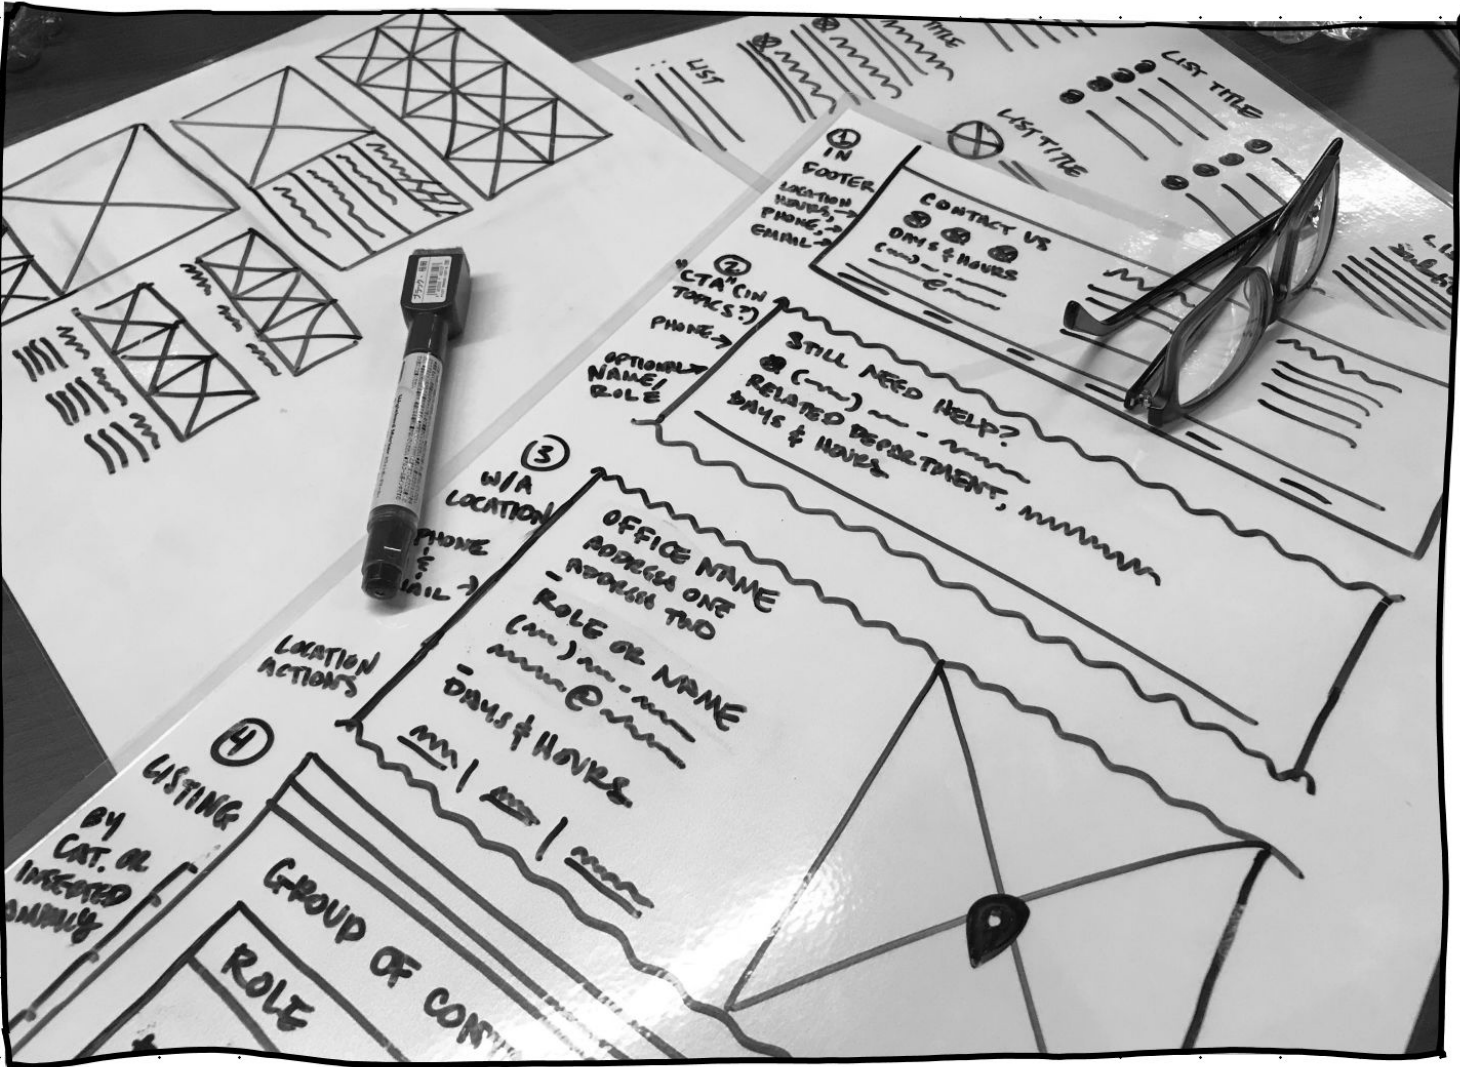 LIST
TITLE
LIST TITLE
LIST TITLE
1
IN
FOOTER
LOCATION
HOURS,
PHONE,
EMAIL
CONTACT US
DAYS & HOURS
2
"CTA" (IN
TOPICS?)
PHONE
OPTIONAL
NAME/
ROLE
STILL NEED HELP?
RELATED DEPARTMENT,
DAYS & HOURS
3
W/A
LOCATION
PHONE
&
AIL
OFFICE NAME
ADDRESS ONE
ADDRESS TWO
ROLE OR NAME
@
DAYS & HOURS
LOCATION
ACTIONS
4
LISTING
BY
CAT. OR
INSERTED
GROUP OF
ROLE